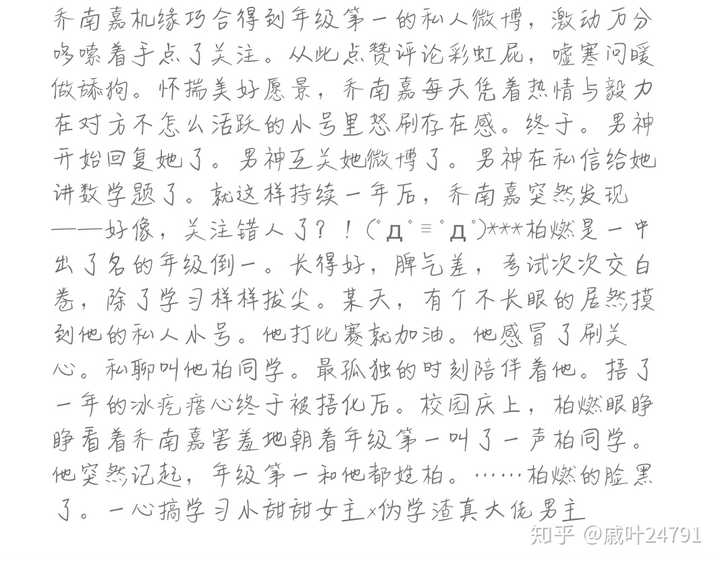 乔南嘉机缘巧合得到年级第一的私人微博，激动万分
哆嗦着手点了关注。从此点赞评论彩虹屁，嘘寒问暖
做舔狗。怀揣美好愿景，乔南嘉每天凭着热情与毅力
在对方不怎么活跃的小号里怒刷存在感。终于。男神
开始回复她了。男神互关她微博了。男神在私信给她
讲数学题了。就这样持续一年后，乔南嘉突然发现
——好像，关注错人了？！(ﾟДﾟ≡ﾟДﾟ)***柏燃是一中
出了名的年级倒一。长得好，脾气差，考试次次交白
卷，除了学习样样拔尖。某天，有个不长眼的居然摸
到他的私人小号。他打比赛就加油。他感冒了刷关
心。私聊叫他柏同学。最孤独的时刻陪伴着他。捂了
一年的冰疙瘩心终于被捂化后。校园庆上，柏燃眼睁
睁看着乔南嘉害羞地朝着年级第一叫了一声柏同学。
他突然记起，年级第一和他都姓柏。……柏燃的脸黑
了。一心搞学习小甜甜女主x伪学渣真大佬男主
知乎 @戚叶24791